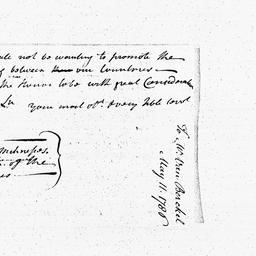 not be wanting to promote the
between our Countries
the Honor to be with great Consideration
Your most obt & very hble servt
of the
To Mr. Van Berckel
May 11. 1786